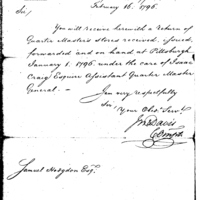 February 16. 1796.
Sir,
You will receive herewith a return of
Quarter Masters stores received, issued,
forwarded and on hand at Pittsburgh
January 1. 1796. under the care of Isaac
Craig Esquire Assistant Quarter Master
General. —
I am very respectfully
Sir Your Obt. Servt.
Jno Davis
Samuel Hodgdon Esqr.